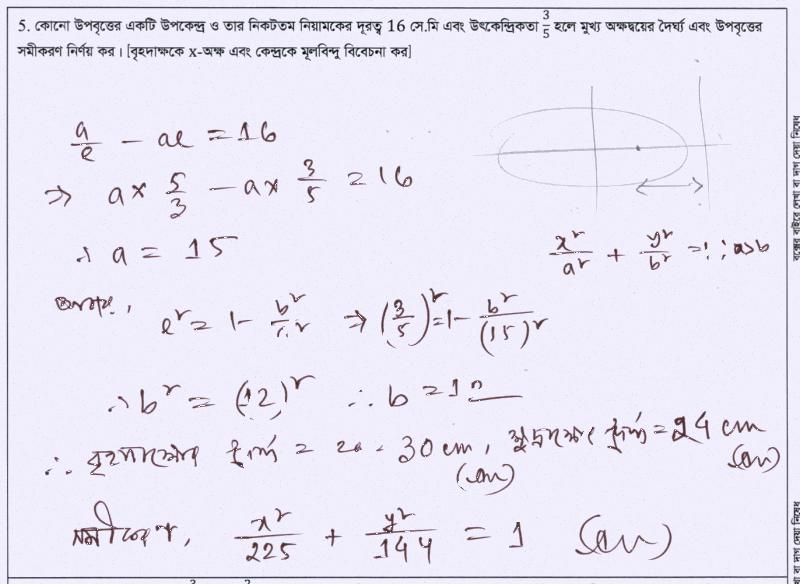 5. কোনো উপবৃত্তের একটি উপকেন্দ্র ও তার নিকটতম নিয়ামকের দূরত্ব 16 সে.মি এবং উৎকেন্দ্রিকতা 3/5 হলে মুখ্য অক্ষদ্বয়ের দৈর্ঘ্য এবং উপবৃত্তের
সমীকরণ নির্ণয় কর। [বৃহদাক্ষকে x-অক্ষ এবং কেন্দ্রকে মূলবিন্দু বিবেচনা কর]
a/e - ae = 16
⇒ a × 5/3 - a × 3/5 = 16
∴ a = 15
x²/a² + y²/b² = 1 ; a>b
e² = 1 - b²/a² ⇒ (3/5)² = 1 - b²/(15)²
∴ b² = (12)² ∴ b = 12
∴ বৃহদাক্ষের দৈর্ঘ্য = 2a = 30 cm, ক্ষুদ্রাক্ষের দৈর্ঘ্য = 24 cm
(Ans) (Ans)
সমীকরণ, x²/225 + y²/144 = 1 (Ans)
বক্সের বাইরে লেখা বা দাগ দেয়া নিষেধ
বা দাগ দেয়া নিষেধ